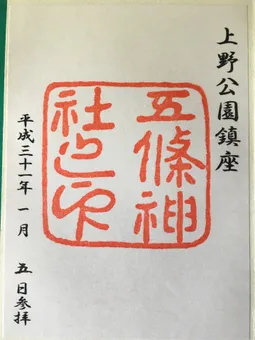 上野公園鎮座
五條神
社之印
平成三十一年 一月 五日参拝